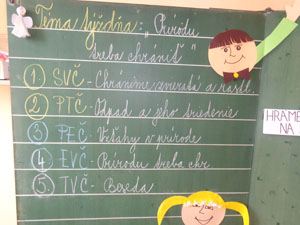 Téma týždňa: „Prírodu
treba chrániť"
1. SVČ - Chránime zvieratá a rastl.
2. PTČ - Odpad a jeho triedenie
3. PEČ - Vzťahy v prírode
4. EVČ - Prírodu treba chr.
5. TVČ - Beseda
HRAME
NA